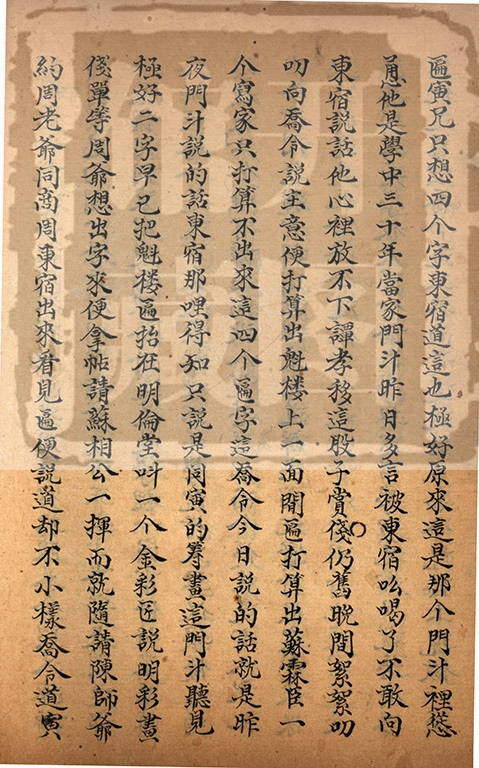 匾寅兄只想四个字東宿道這也極好原來這是那个門斗裡慫
恿他是學中三十年當家門斗昨日多言被東宿吆喝了不敢向
東宿説話他心裡放不下譚孝移這股子賞錢仍舊晩間絮絮叨
叨向喬令說主意便打算出魁楼上一面閤匾打算出蘇霖臣一
个寫家只打算不出來這四个匾字這喬令今日説的話就是昨
夜門斗説的話東宿那哩得知只説是同寅的筹畫這門斗聽見
極好二字早已把魁楼匾抬在明倫堂叫一个金彩匠説明彩畫
僟單等周爺想出字來便拿帖請蘇相公一揮而就隨請陳師爺
約周老爺同商周東宿出來看見匾便説道却不小樣喬令道寅